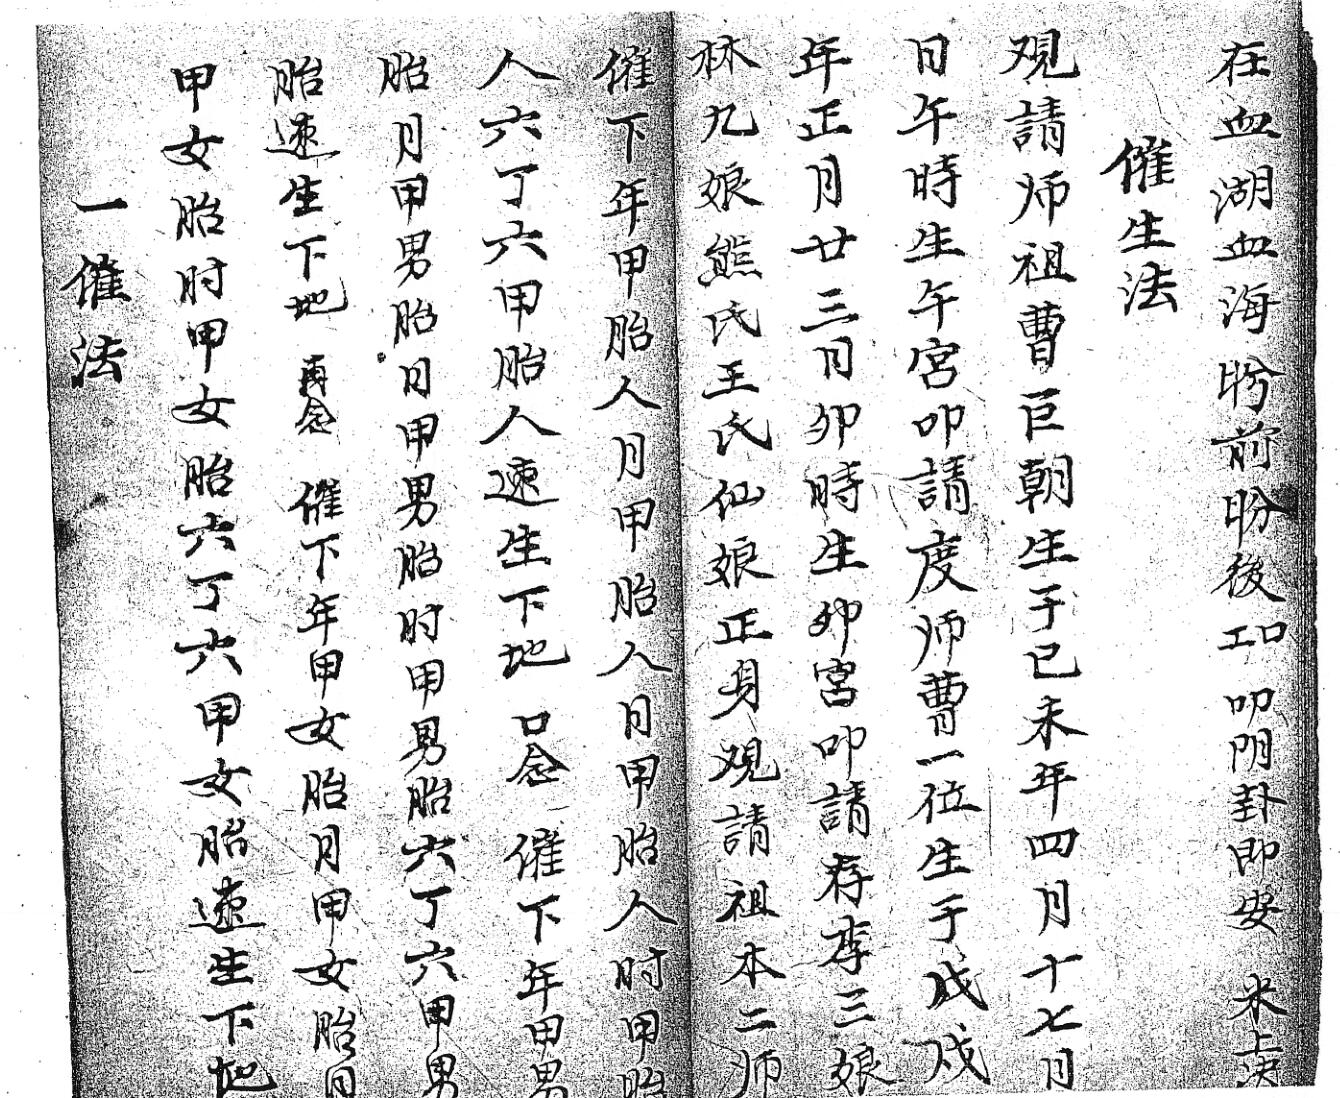 在血湖血海盼前盼後𢒉叩阴卦即安 米上決
催生法
观請师祖曹巨朝生于己未年四月十七月
日午時生午宮叩請度师曹一位生于戊戌
年正月廿三月卯時生卯宮叩請存李三娘
林九娘熊氏王氏仙娘正身观請祖本二师
催下年甲胎人月甲胎人日甲胎人时甲胎
人六丁六甲胎人速生下地 口念 催下年甲男
胎月甲男胎日甲男胎时甲男胎六丁六甲男
胎速生下地 再念 催下年甲女胎月甲女胎日
甲女胎时甲女胎六丁六甲女胎速生下地
一催法